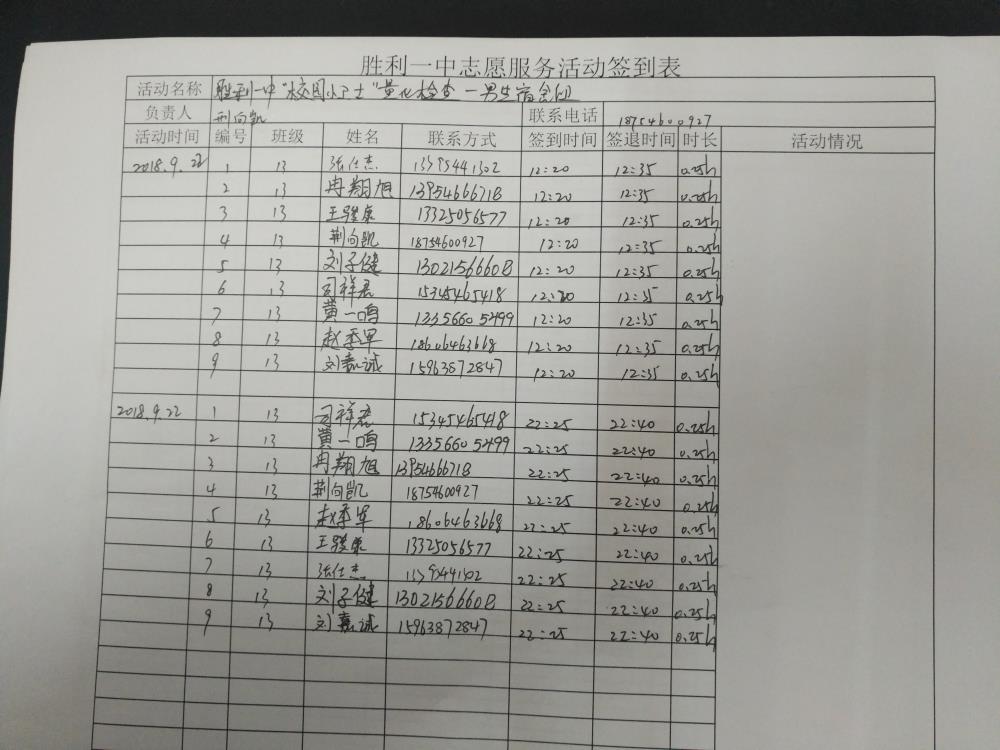 胜利一中志愿服务活动签到表
活动名称 胜利一中"校园小卫士"量化检查 — 男生宿舍组
负责人 荆向凯 联系电话 18754600927
活动时间 编号 班级 姓名 联系方式 签到时间 签退时间 时长 活动情况
2018.9.22 1 13 张仕杰 12:20 12:35 0.25h
2 13 冉翔旭 13954666718 12:20 12:35 0.25h
3 13 王骏康 13325056577 12:20 12:35 0.25h
4 13 荆向凯 18754600927 12:20 12:35 0.25h
5 13 刘子健 13021566608 12:20 12:35 0.25h
6 13 司祥君 15345465418 12:20 12:35 0.25h
7 13 黄一鸣 13356605499 12:20 12:35 0.25h
8 13 赵季军 18606463668 12:20 12:35 0.25h
9 13 刘嘉诚 15963872847 12:20 12:35 0.25h
2018.9.22 1 13 司祥君 15345465418 22:25 22:40 0.25h
2 13 黄一鸣 13356605499 22:25 22:40 0.25h
3 13 冉翔旭 13954666718 22:25 22:40 0.25h
4 13 荆向凯 18754600927 22:25 22:40 0.25h
5 13 赵季军 18606463668 22:25 22:40 0.25h
6 13 王骏康 13325056577 22:25 22:40 0.25h
7 13 张仕杰 22:25 22:40 0.25h
8 13 刘子健 13021566608 22:25 22:40 0.25h
9 13 刘嘉诚 15963872847 22:25 22:40 0.25h